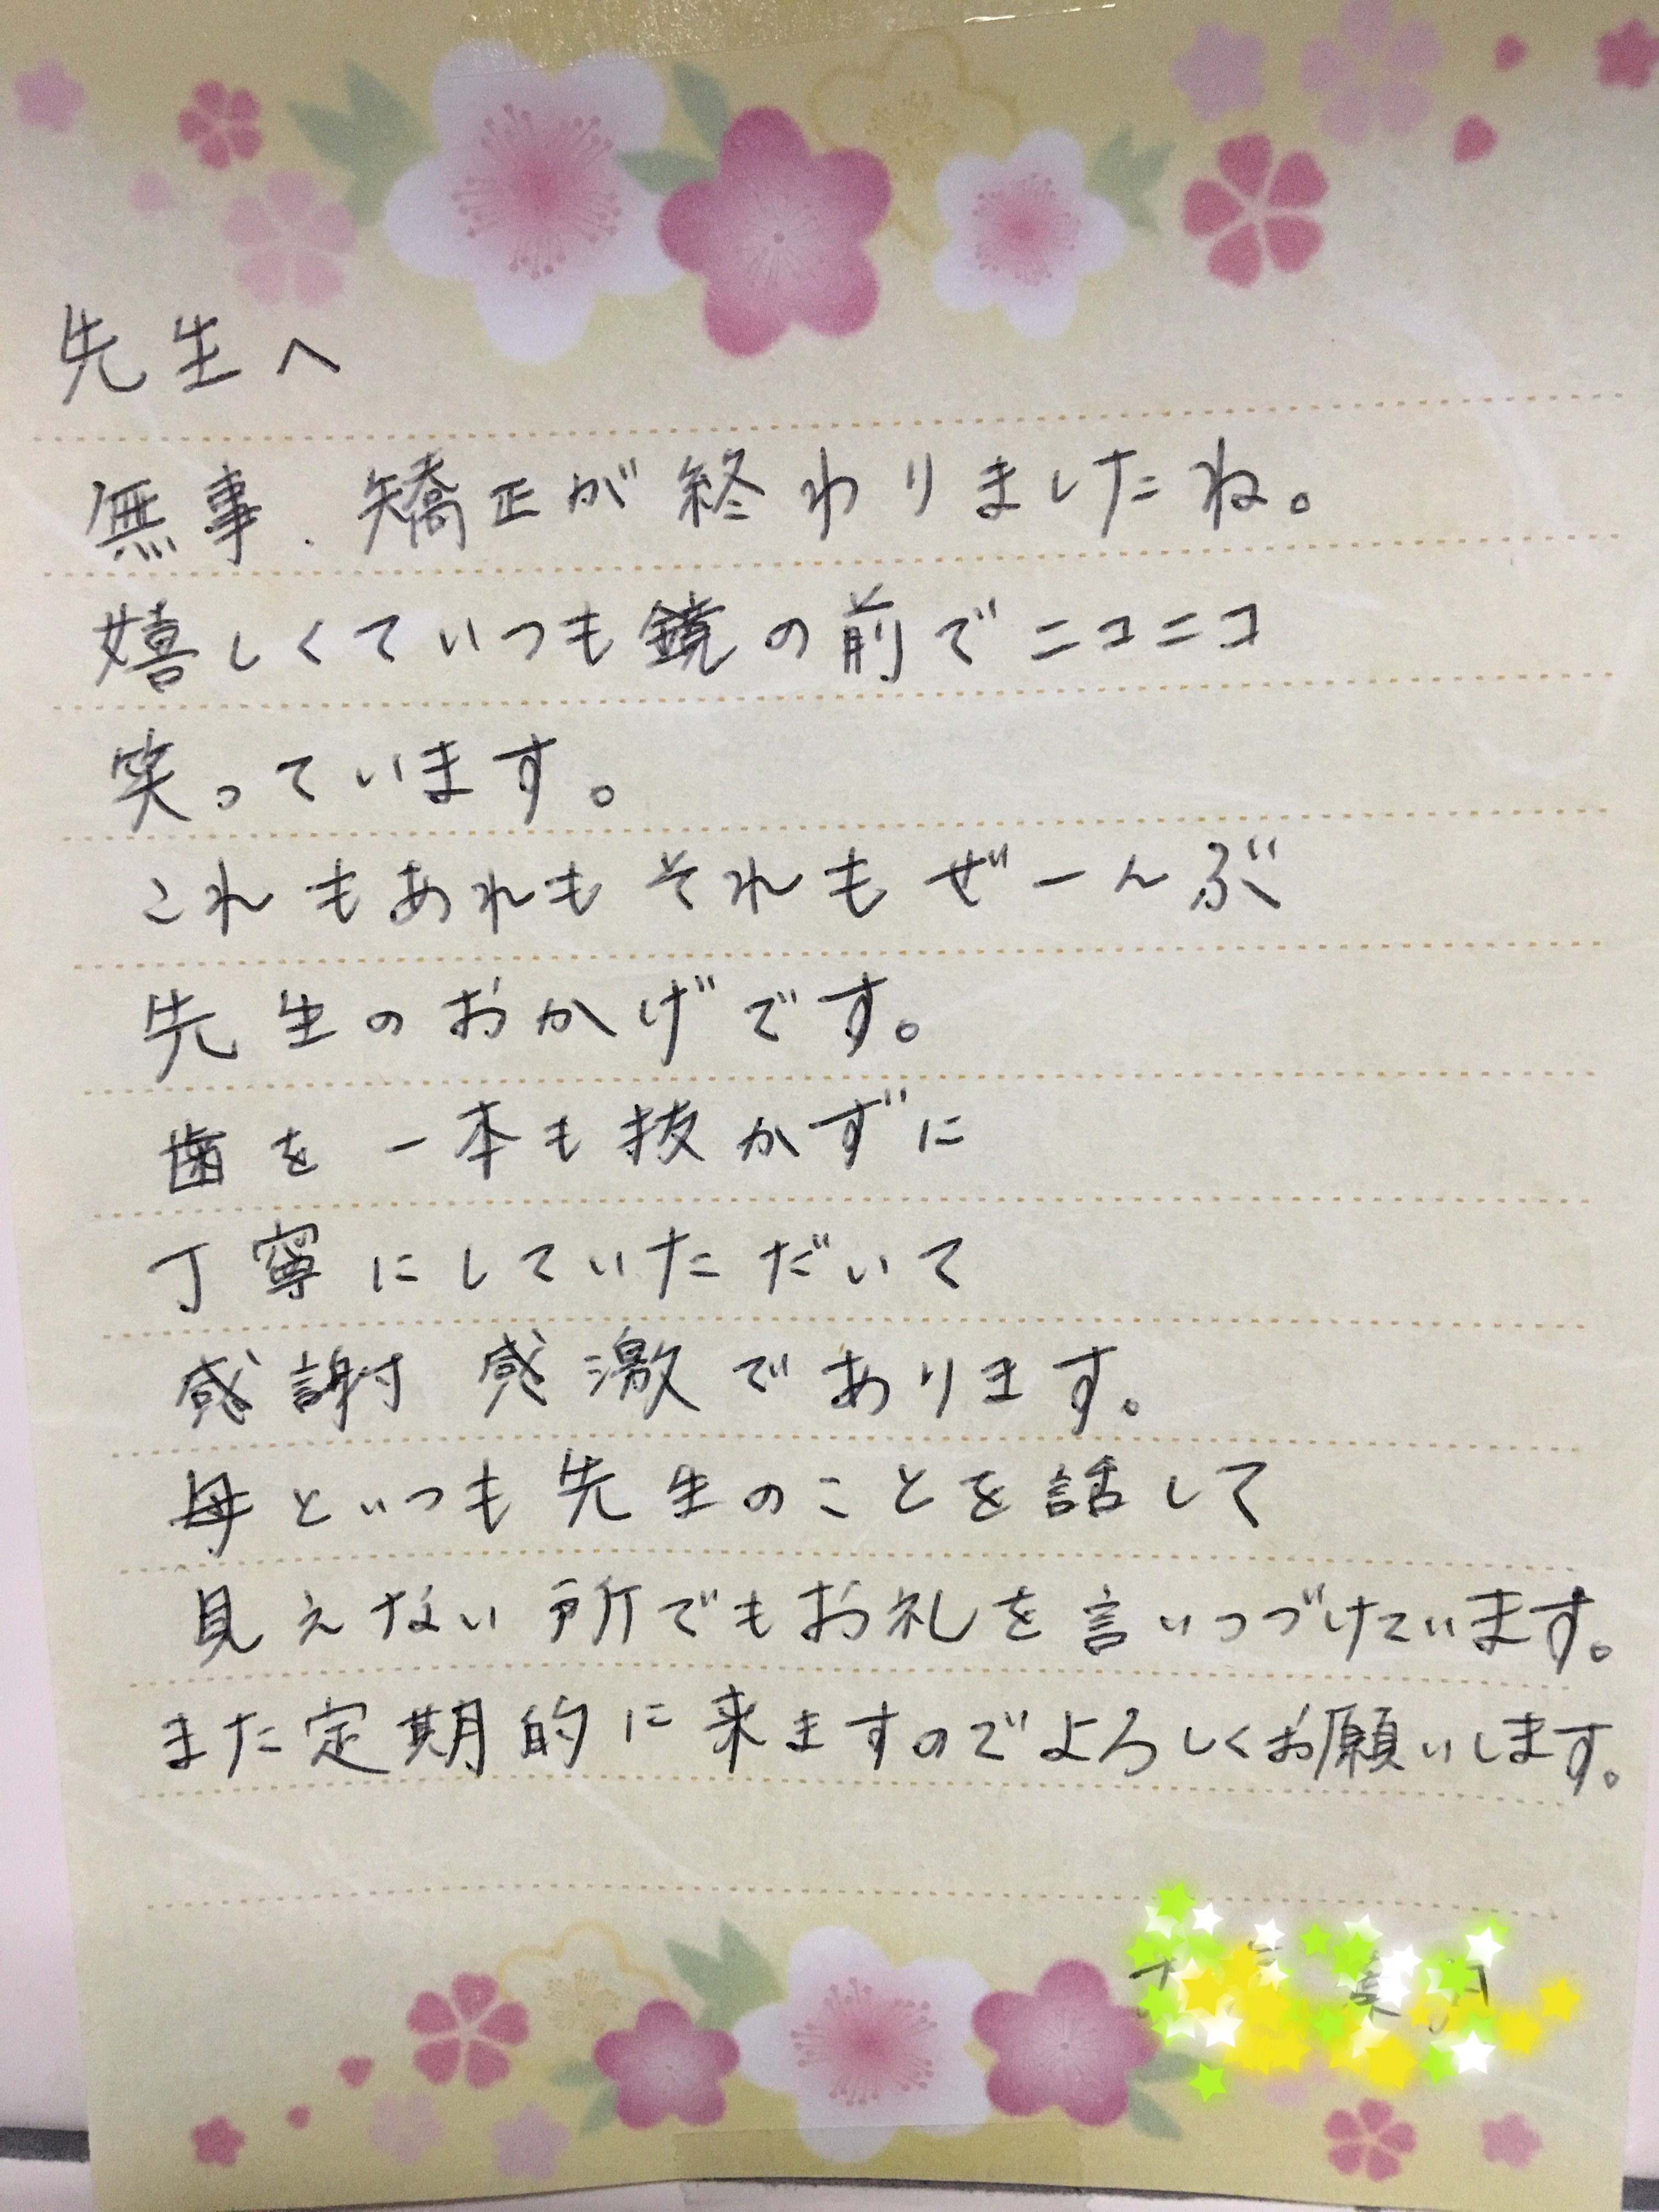 先生へ
無事、矯正が終わりましたね。
嬉しくていつも鏡の前でニコニコ
笑っています。
これもあれもそれもぜーんぶ
先生のおかげです。
歯を一本も抜かずに
丁寧にしていただいて
感謝 感激であります。
母といつも先生のことを話して
見えない所でもお礼を言いつづけています。
また定期的に来ますのでよろしくお願いします。